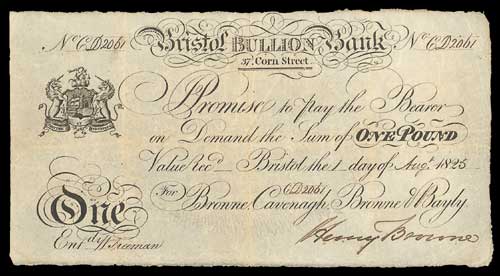 No C,D2061 Bristol BULLION Bank No C,D2061
37, Corn Street.
I Promise to pay the Bearer
on Demand the Sum of ONE POUND
Value Recd Bristol the 1 day of Augt 1825
C,D2061
For Browne, Cavenagh, Browne & Bayly.
One
Entd W Freeman Henry Browne